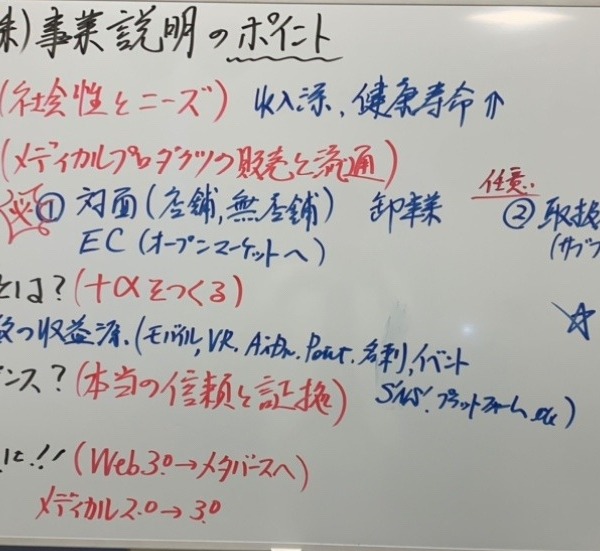 株)事業説明のポイント
(社会性とニーズ) 収入源、健康寿命↑
(メディカルプロダクツの販売と流通)
① 対面(店舗,無店舗) 卸事業
EC(オープンマーケットへ)
任意
② 取扱
(サブ
とは?(+αをつくる)
の収益源.(モバイル,VR. 名刺,イベント
SNS.プラットフォーム etc)
ンス?(本当の信頼と証拠)
は!!(Web3.0→メタバースへ)
メディカル2.0→3.0